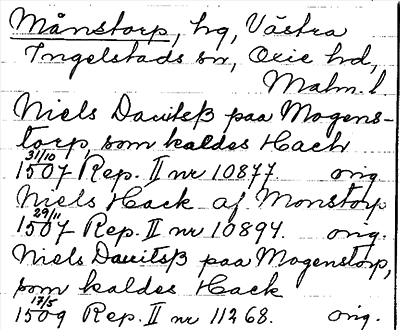 Månstorp, hg, Västra
Ingelstads sn, Oxie hd,
Malm. l
Niels Dauitsß paa Mogens-
torp, som kaldes Hack
31/10
1507 Rep. II nr 10877. orig.
Niels Hack af Monstorp
29/11
1507 Rep. II nr 10894. orig.
Niels Dauitsß paa Mogenstorp,
som kaldes Hack
17/5
1509 Rep. II nr 11268. orig.